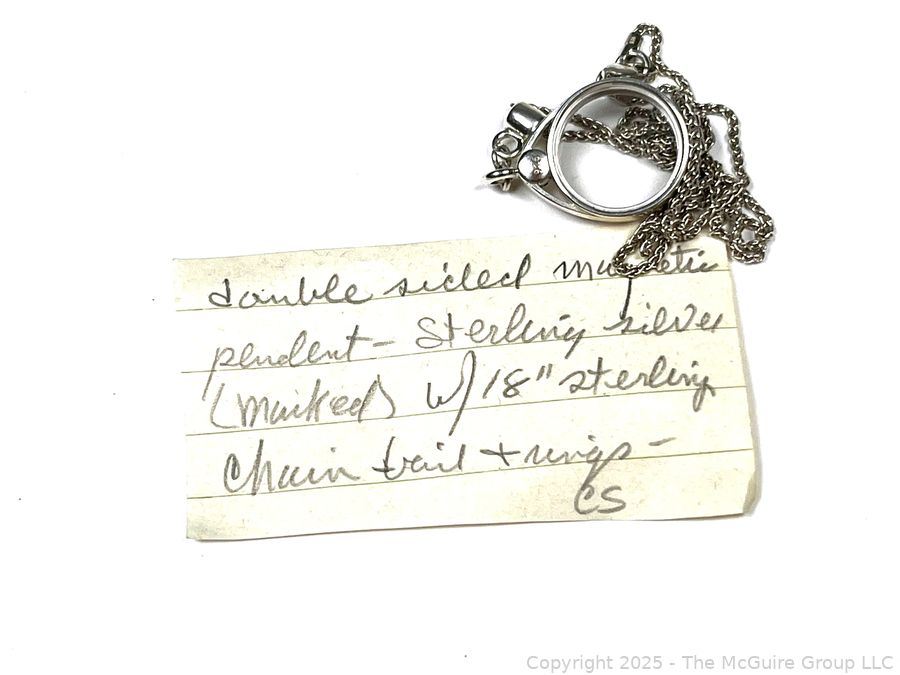 double sided magnetic
pendent - Sterling silver
(marked) w/ 18" sterling
Chain bail + rings -
CS
Copyright 2025 - The McGuire Group LLC